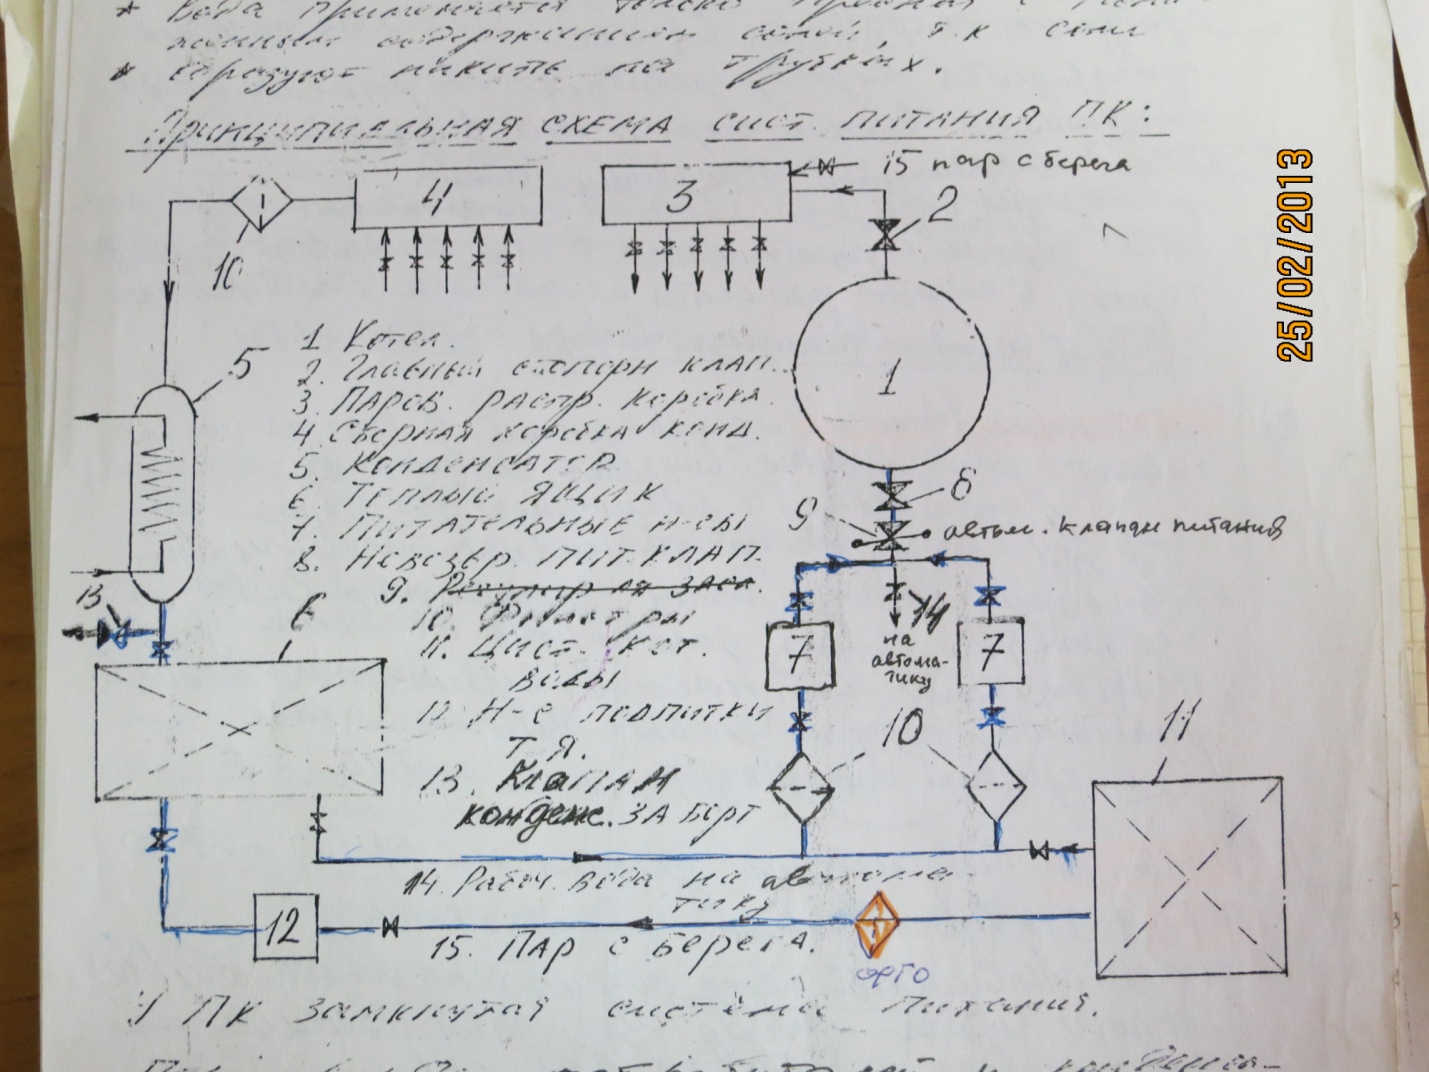 * Вода применяется только
содержанием солей, т.к соли
* образуют накипь на трубках.
ПРИНЦИПИАЛЬНАЯ СХЕМА СИСТ. ПИТАНИЯ ПК:
15 пар с берега
4
3
2
10
25/02/2013
5
1
1 Котел.
2. Главный стопорн клап.
3. ПАРОВ. распр. коробка.
4. Сборная коробка конд.
5. КОНДЕНСАТОР
6. ТЕПЛЫЙ ЯЩИК
7. ПИТАТЕЛЬНЫЕ Н-СЫ
8. НЕВОЗВР. ПИТ. КЛАП.
9.
10. Фильтры
11. Цист. кот.
воды
12. Н-с подпитки
Т.Я.
13. Клапан
конденс. ЗА борт
14. Рабоч. вода на автома-
тику
15. Пар с берега.
8
9
автом. клапан питания
13
6
7
14
7
на
автома-
тику
10
11
12
ФРГО
У ПК замкнутая система питания.